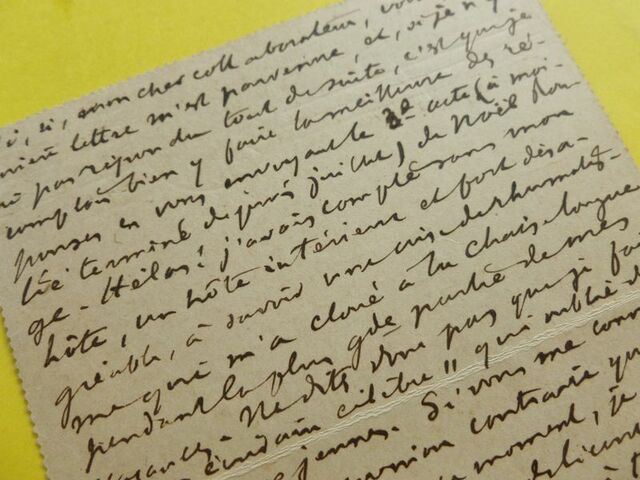 si, si, mon cher collaborateur, vo
nière lettre m'est parvenue, et, si je n'y
ai pas répondu tout de suite, c'est que je
comptais bien y faire la meilleure des ré-
ponses en vous envoyant le 3e acte (à moi-
tié terminé depuis juillet) de Noël Rou-
ge. Hélas! j'avais compté sans mon
hôte, un hôte intérieur et fort désa-
gréable, à savoir une crise de rhumatis-
me qui m'a cloué à la chaise longue
pendant la plus gde partie de mes
vacances. Ne dites donc pas que je fai
écrivain célèbre" qui oublie
jeunes. Si vous me conn
opinion contraire qu
moment, je